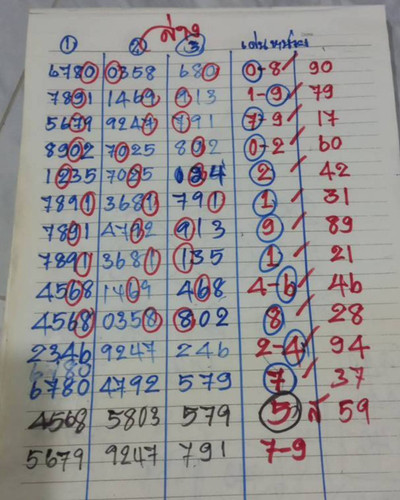 ล่าง
① ② ③ เด่นหน้า
6780 0358 680 0-8 90
7891 1469 913 1-9 79
5679 9247 791 7-9 17
8902 7025 802 0-2 60
1235 7025 2 42
7891 3681 791 1 31
7891 4792 913 9 89
7891 3681 135 1 21
4568 1469 468 4-6 46
4568 0358 802 8 28
2346 9247 246 2-4 94
6780 4792 579 7 37
4568 5803 579 5 59
5679 9247 791 7-9